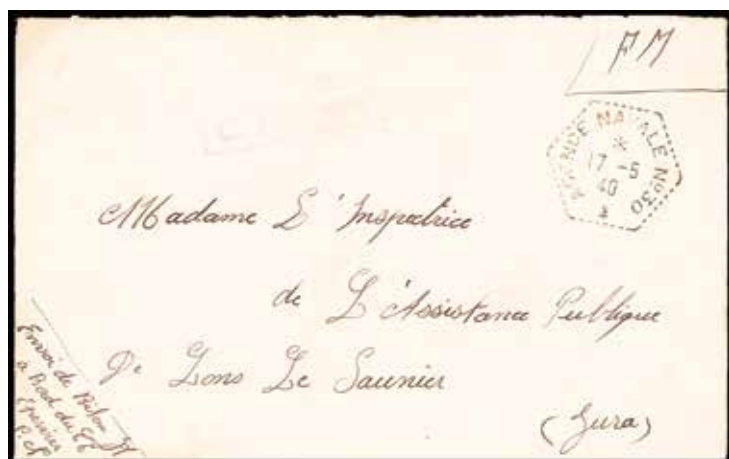 FM
AGENCE NAVALE No30
*
17 -5
40
*
Madame L'Inspectrice
de L'Assistance Publique
De Lons Le Saunier
(Jura)
Envoi de
a Bord du